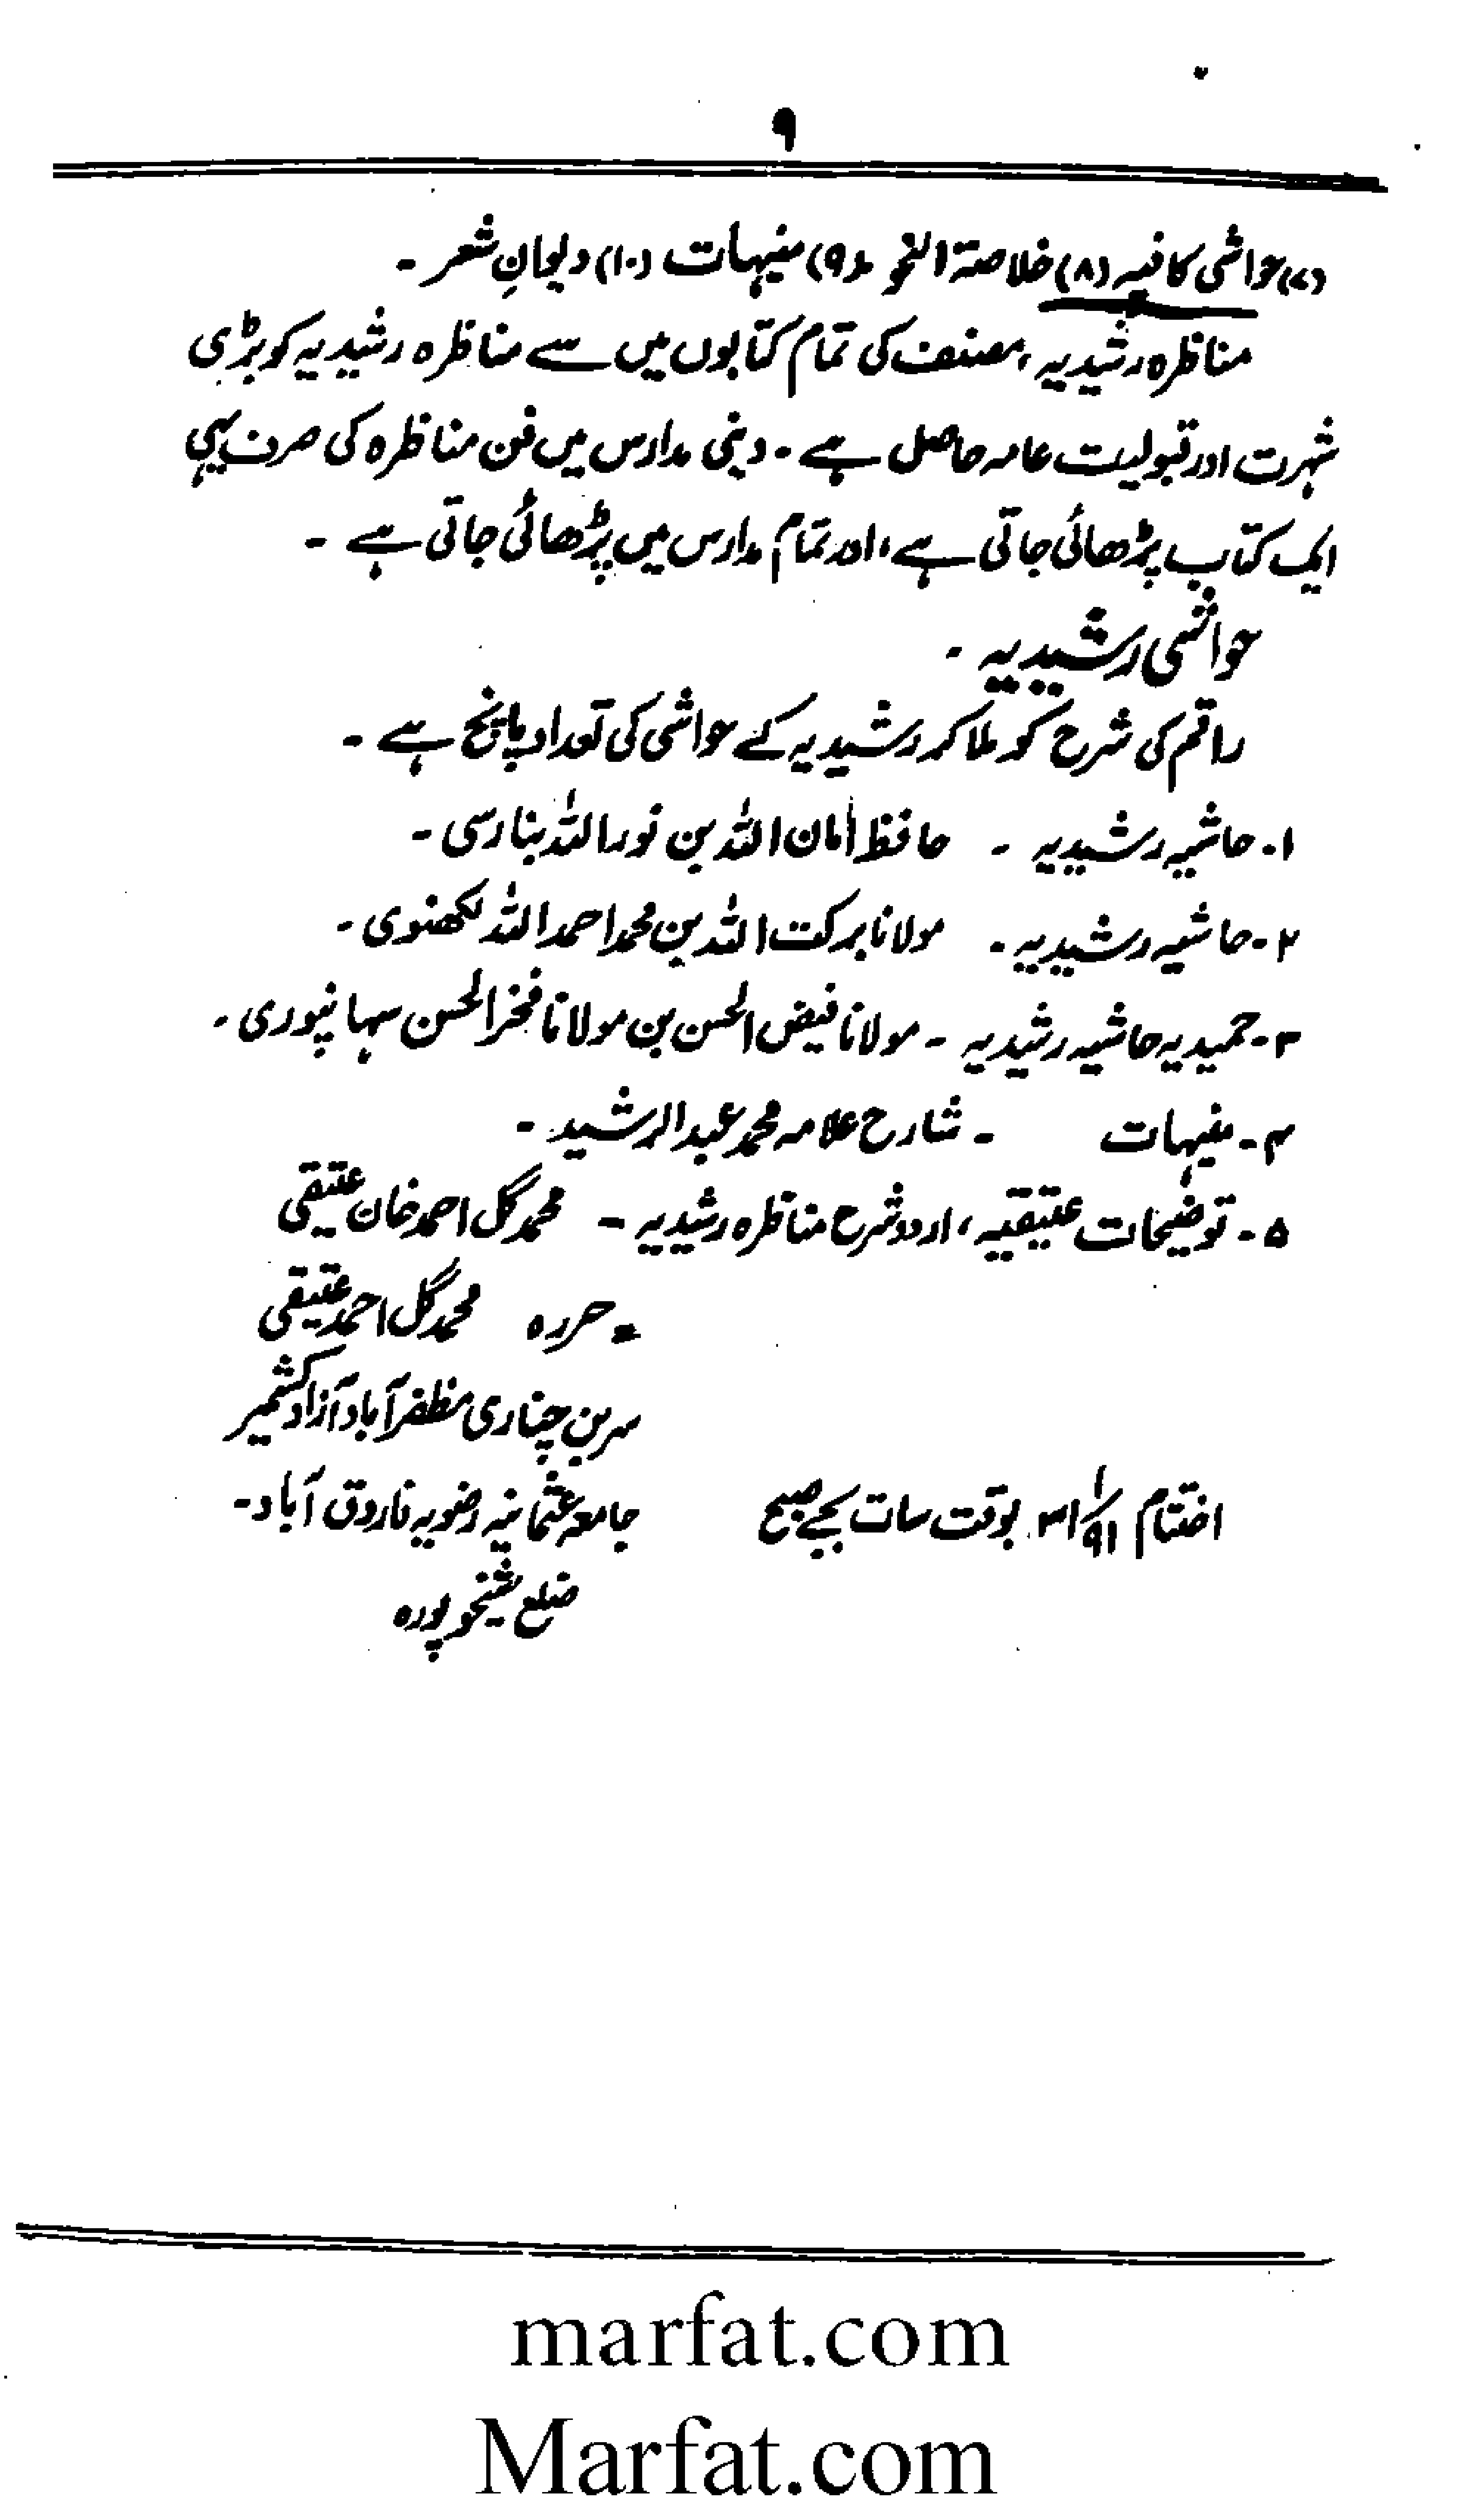 ۹
(۷) حواشی کافیہ (۸) خلاصۃ النحو (۹) منہیات (۱۰) دیوانِ شعر ۔
مناظرہ رشیدیہ ، مصنف کی تمام کتابوں میں سے مناظرہ رشیدیہ کو بڑی
شہرت اور قبولیت عامہ حاصل ہے ۔ دینی مدارس میں فن مناظرہ کی صرف یہی
ایک کتاب پڑھائی جاتی ہے ، اور تمام مدارس میں پڑھائی جاتی ہے ۔
حواشی رشیدیہ ۔
راقم کی شرح کو ملا کر رشیدیہ کے حواشی کی تعداد پانچ ہے ۔
۱۔ حاشیہ رشیدیہ ۔ حافظ امان اللہ بن نور اللہ بنارسی ۔
۲۔ حاشیہ رشیدیہ ۔ مولانا برکت اللہ بن محمد احمد اللہ لکھنوی ۔
۳۔ حمیدیہ حاشیہ رشیدیہ ۔ مولانا فیض الحسن بن مولانا فخر الحسن سہانپوری ۔
۴۔ منہیات ۔ شارح علامہ محمد عبدالرشید ۔
۵۔ توضیحات عتیقیہ ، اردو شرح مناظرہ رشیدیہ ۔ محمد گل احمد خان عتیقی
حررہ محمد گل احمد عتیقی
سربن چناری مظفر آباد آزاد کشمیر
اختتام ۳۱/۱/۹۱ بوقت سات بجے صبح جامعہ عثمانیہ رضویہ فاروق آباد ۔
ضلع شیخوپورہ
marfat.com
Marfat.com